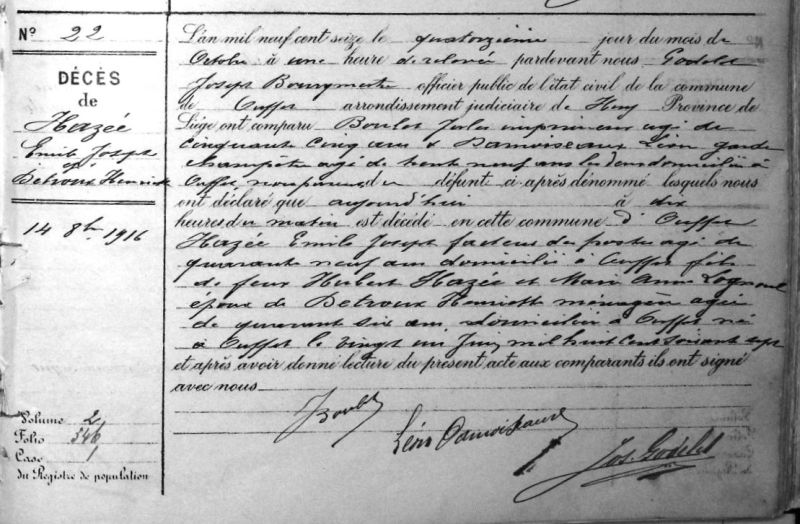 Nº 22
DÉCÈS
de
Hazée
Emile Joseph
ep
Detroux Henriette
14 8bre 1916
Volume 2
Folio 546
Case 1
du Registre de population
L'an mil neuf cent seize le quatorzième jour du mois de
Octobre à une heure de relevée pardevant nous Godelet
Joseph Bourgmestre officier public de l'état civil de la commune
de Ouffet arrondissement judiciaire de Huy Province de
Liége ont comparu Boulet Jules imprimeur agé de
cinquante cinq ans & Damoiseaux Léon garde
champêtre agé de trente neuf ans les deux domiciliés à
Ouffet, non parents du défunt ci-après dénommé lesquels nous
ont déclaré que aujourd'hui à dix
heures du matin est décédé en cette commune d'Ouffet
Hazée Emile Joseph facteur des postes agé de
quarante neuf ans domicilié à Ouffet fils
de feux Hubert Hazée et Marie Anne
époux de Detroux Henriette ménagère agée
de quarante six ans, domiciliée à Ouffet né
à Ouffet le vingt un Juin mil huit cent soixante sept
et après avoir donné lecture du présent acte aux comparants ils ont signé
avec nous
JBoulet
Léon Damoiseaux
Jos. Godelet